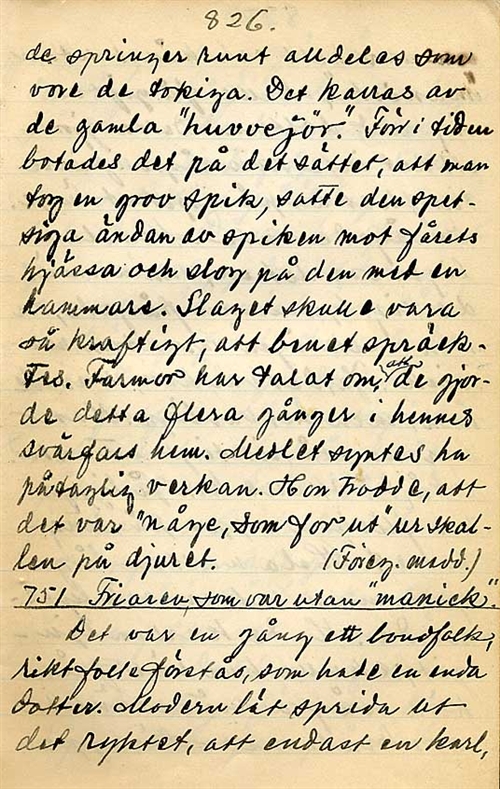 826.
de springer runt alldeles som
vore de tokiga. Det kallas av
de gamla "huvvejör." Förr i tiden
botades det på det sättet, att man
tog en grov spik, satte den spet-
siga ändan av spiken mot fårets
hjässa och slog på den med en
hammare. Slaget skulle vara
så kraftigt, att benet spräck-
tes. Farmor har talat om, att de gjor-
de detta flera gånger i hennes
svärfars hem. Medlet syntes ha
påtaglig verkan. Hon trodde, att
det var "någe, som for ut" ur skal-
len på djuret. (Föreg. medd.)
751 Friaren, som var utan "manick".
Det var en gång ett bondfolk,
rikt folk förstås, som hade en enda
dotter. Modern lät sprida ut
det ryktet, att endast en karl,